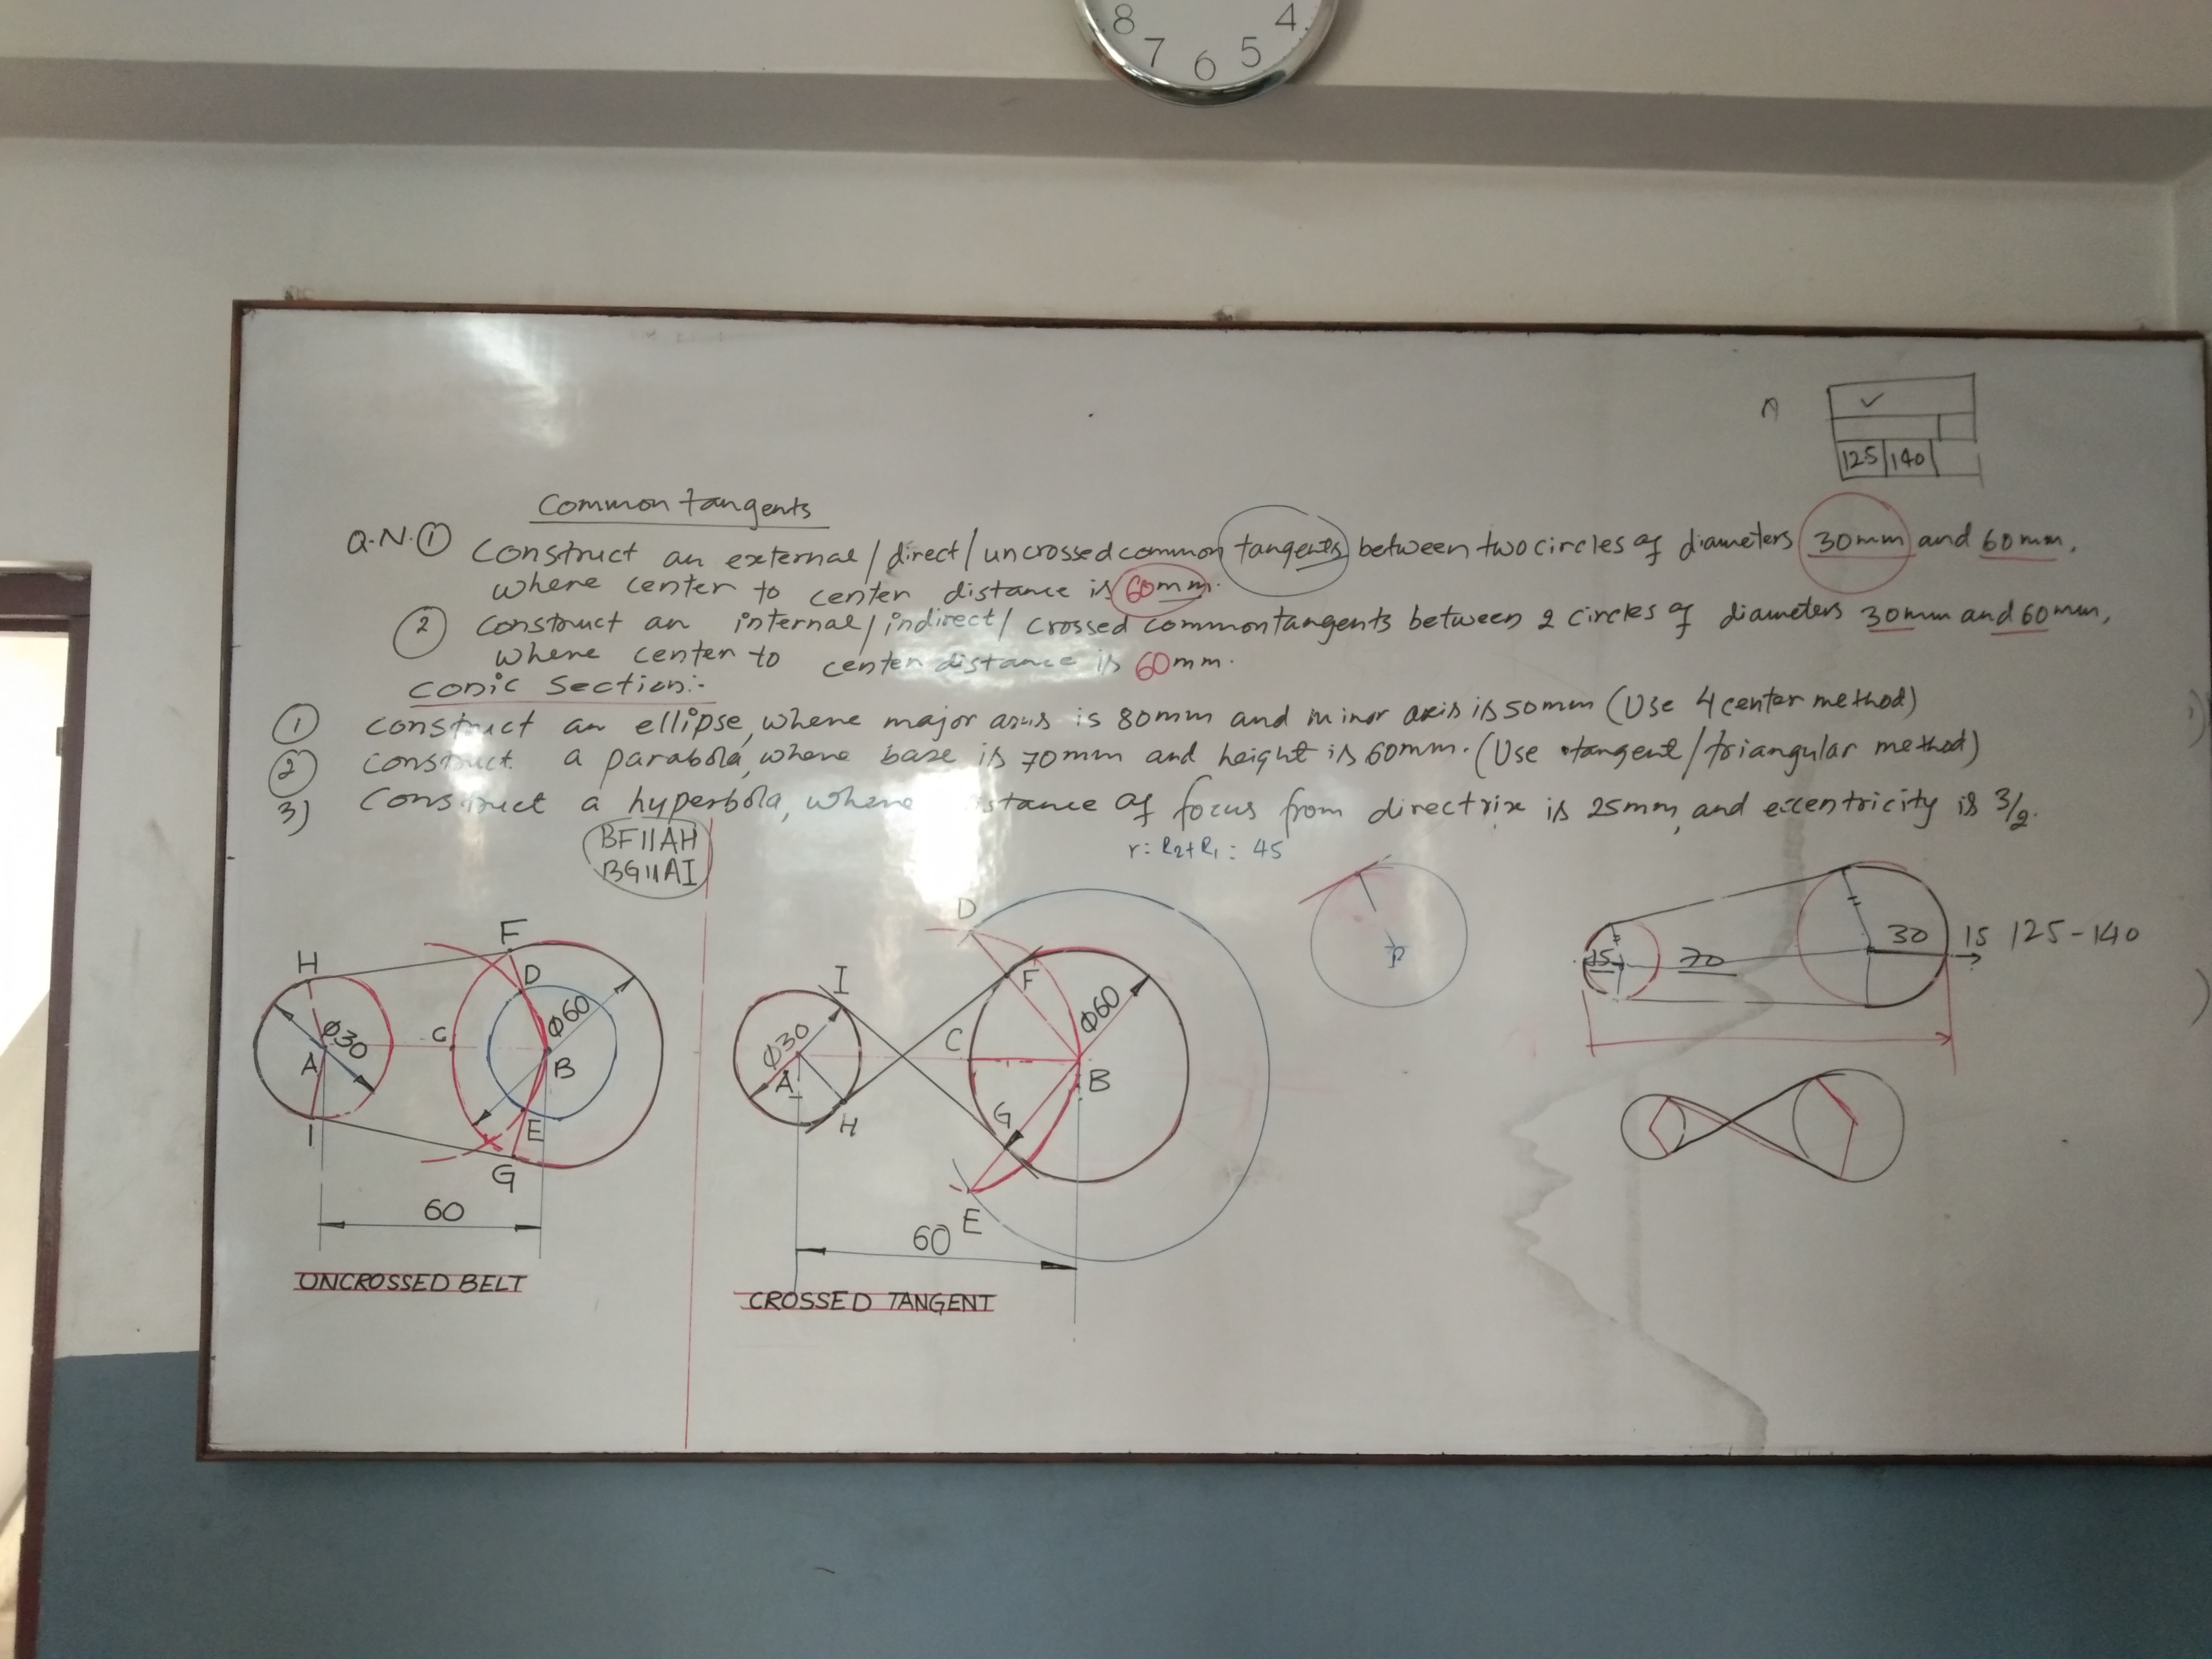 8 7 6 5 4
A
✓
125 140
Common tangents
Q.N.① Construct an external/direct/uncrossed common tangents between two circles of diameters 30mm and 60mm,
where center to center distance is 60mm.
② construct an internal/indirect/crossed common tangents between 2 circles of diameters 30mm and 60mm,
where center to center distance is 60mm.
Conic Section:-
① construct an ellipse, where major axis is 80mm and minor axis is 50mm (Use 4 center method)
② construct a parabola, where base is 70mm and height is 60mm. (Use tangent/triangular method)
3) Construct a hyperbola, where istance of focus from directrix is 25mm, and eccentricity is 3/2.
BF||AH
BG||AI
r = R2+R1 = 45
H F D
A Ø30 C Ø60 B
I E G
60
UNCROSSED BELT
D
I F
Ø30 A C Ø60 B
H G
E
60
CROSSED TANGENT
15 70 30 15 125-140